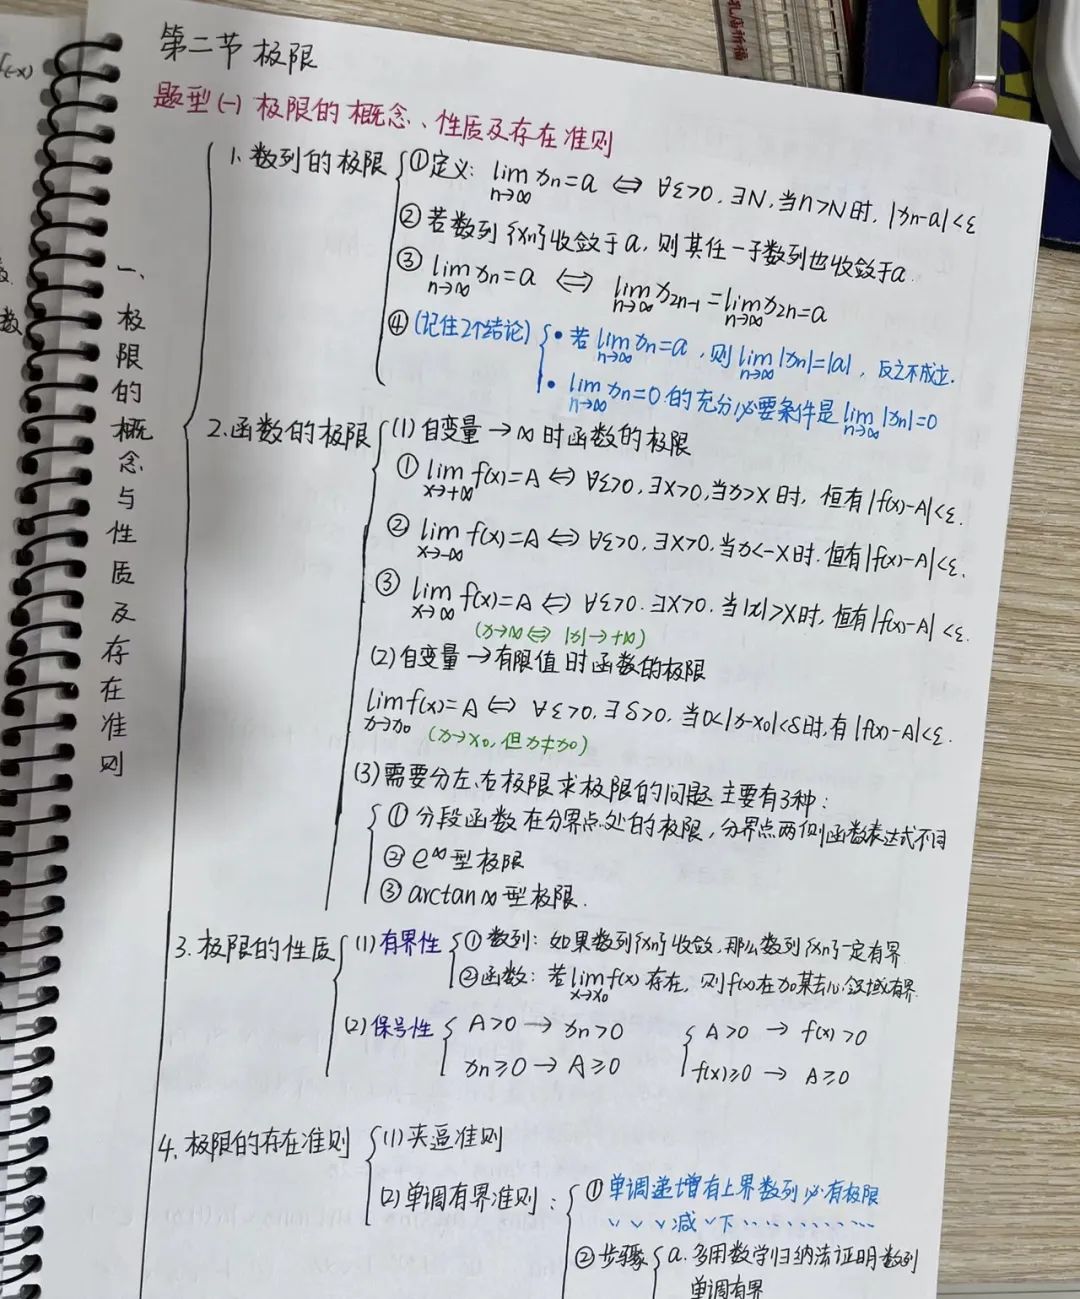 第二节 极限
题型(一) 极限的概念、性质及存在准则
一、极限的概念与性质及存在准则
1、数列的极限
①定义: lim n→∞ xn=a ⇔ ∀ε>0, ∃N, 当n>N时, |xn-a|<ε
②若数列{xn}收敛于a, 则其任一子数列也收敛于a.
③ lim n→∞ xn=a ⇔ lim n→∞ x2n-1=lim n→∞ x2n=a
④(记住2个结论)
• 若lim n→∞ xn=a, 则lim n→∞ |xn|=|a|, 反之不成立.
• lim n→∞ xn=0的充分必要条件是lim n→∞ |xn|=0
2.函数的极限
(1)自变量→∞时函数的极限
① lim x→+∞ f(x)=A ⇔ ∀ε>0, ∃X>0, 当x>X时, 恒有|f(x)-A|<ε.
② lim x→-∞ f(x)=A ⇔ ∀ε>0, ∃X>0, 当x<-X时, 恒有|f(x)-A|<ε.
③ lim x→∞ f(x)=A ⇔ ∀ε>0. ∃X>0. 当|x|>X时, 恒有|f(x)-A|<ε.
(x→∞ ⇔ |x|→+∞)
(2)自变量→有限值时函数的极限
lim x→x0 f(x)=A ⇔ ∀ε>0, ∃δ>0, 当0<|x-x0|<δ时, 有|f(x)-A|<ε.
(x→x0, 但x≠x0)
(3)需要分左、右极限求极限的问题主要有3种:
①分段函数在分界点处的极限, 分界点两侧函数表达式不同
②e^∞型极限
③arctan∞型极限.
3.极限的性质
(1)有界性
①数列: 如果数列{xn}收敛, 那么数列{xn}一定有界
②函数: 若lim x→x0 f(x)存在, 则f(x)在x0某去心邻域有界.
(2)保号性
A>0 → xn>0
xn≥0 → A≥0
A>0 → f(x)>0
f(x)≥0 → A≥0
4.极限的存在准则
(1)夹逼准则
(2)单调有界准则:
①单调递增有上界数列必有极限
、、、减、下、、、、、、
②步骤
a.多用数学归纳法证明数列
单调有界
f(-x)
数
孔庙祈福